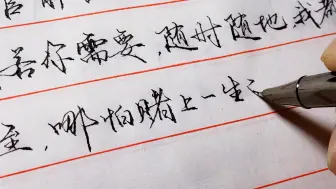 若你需要,随时随地我都
至,哪怕赌上一生